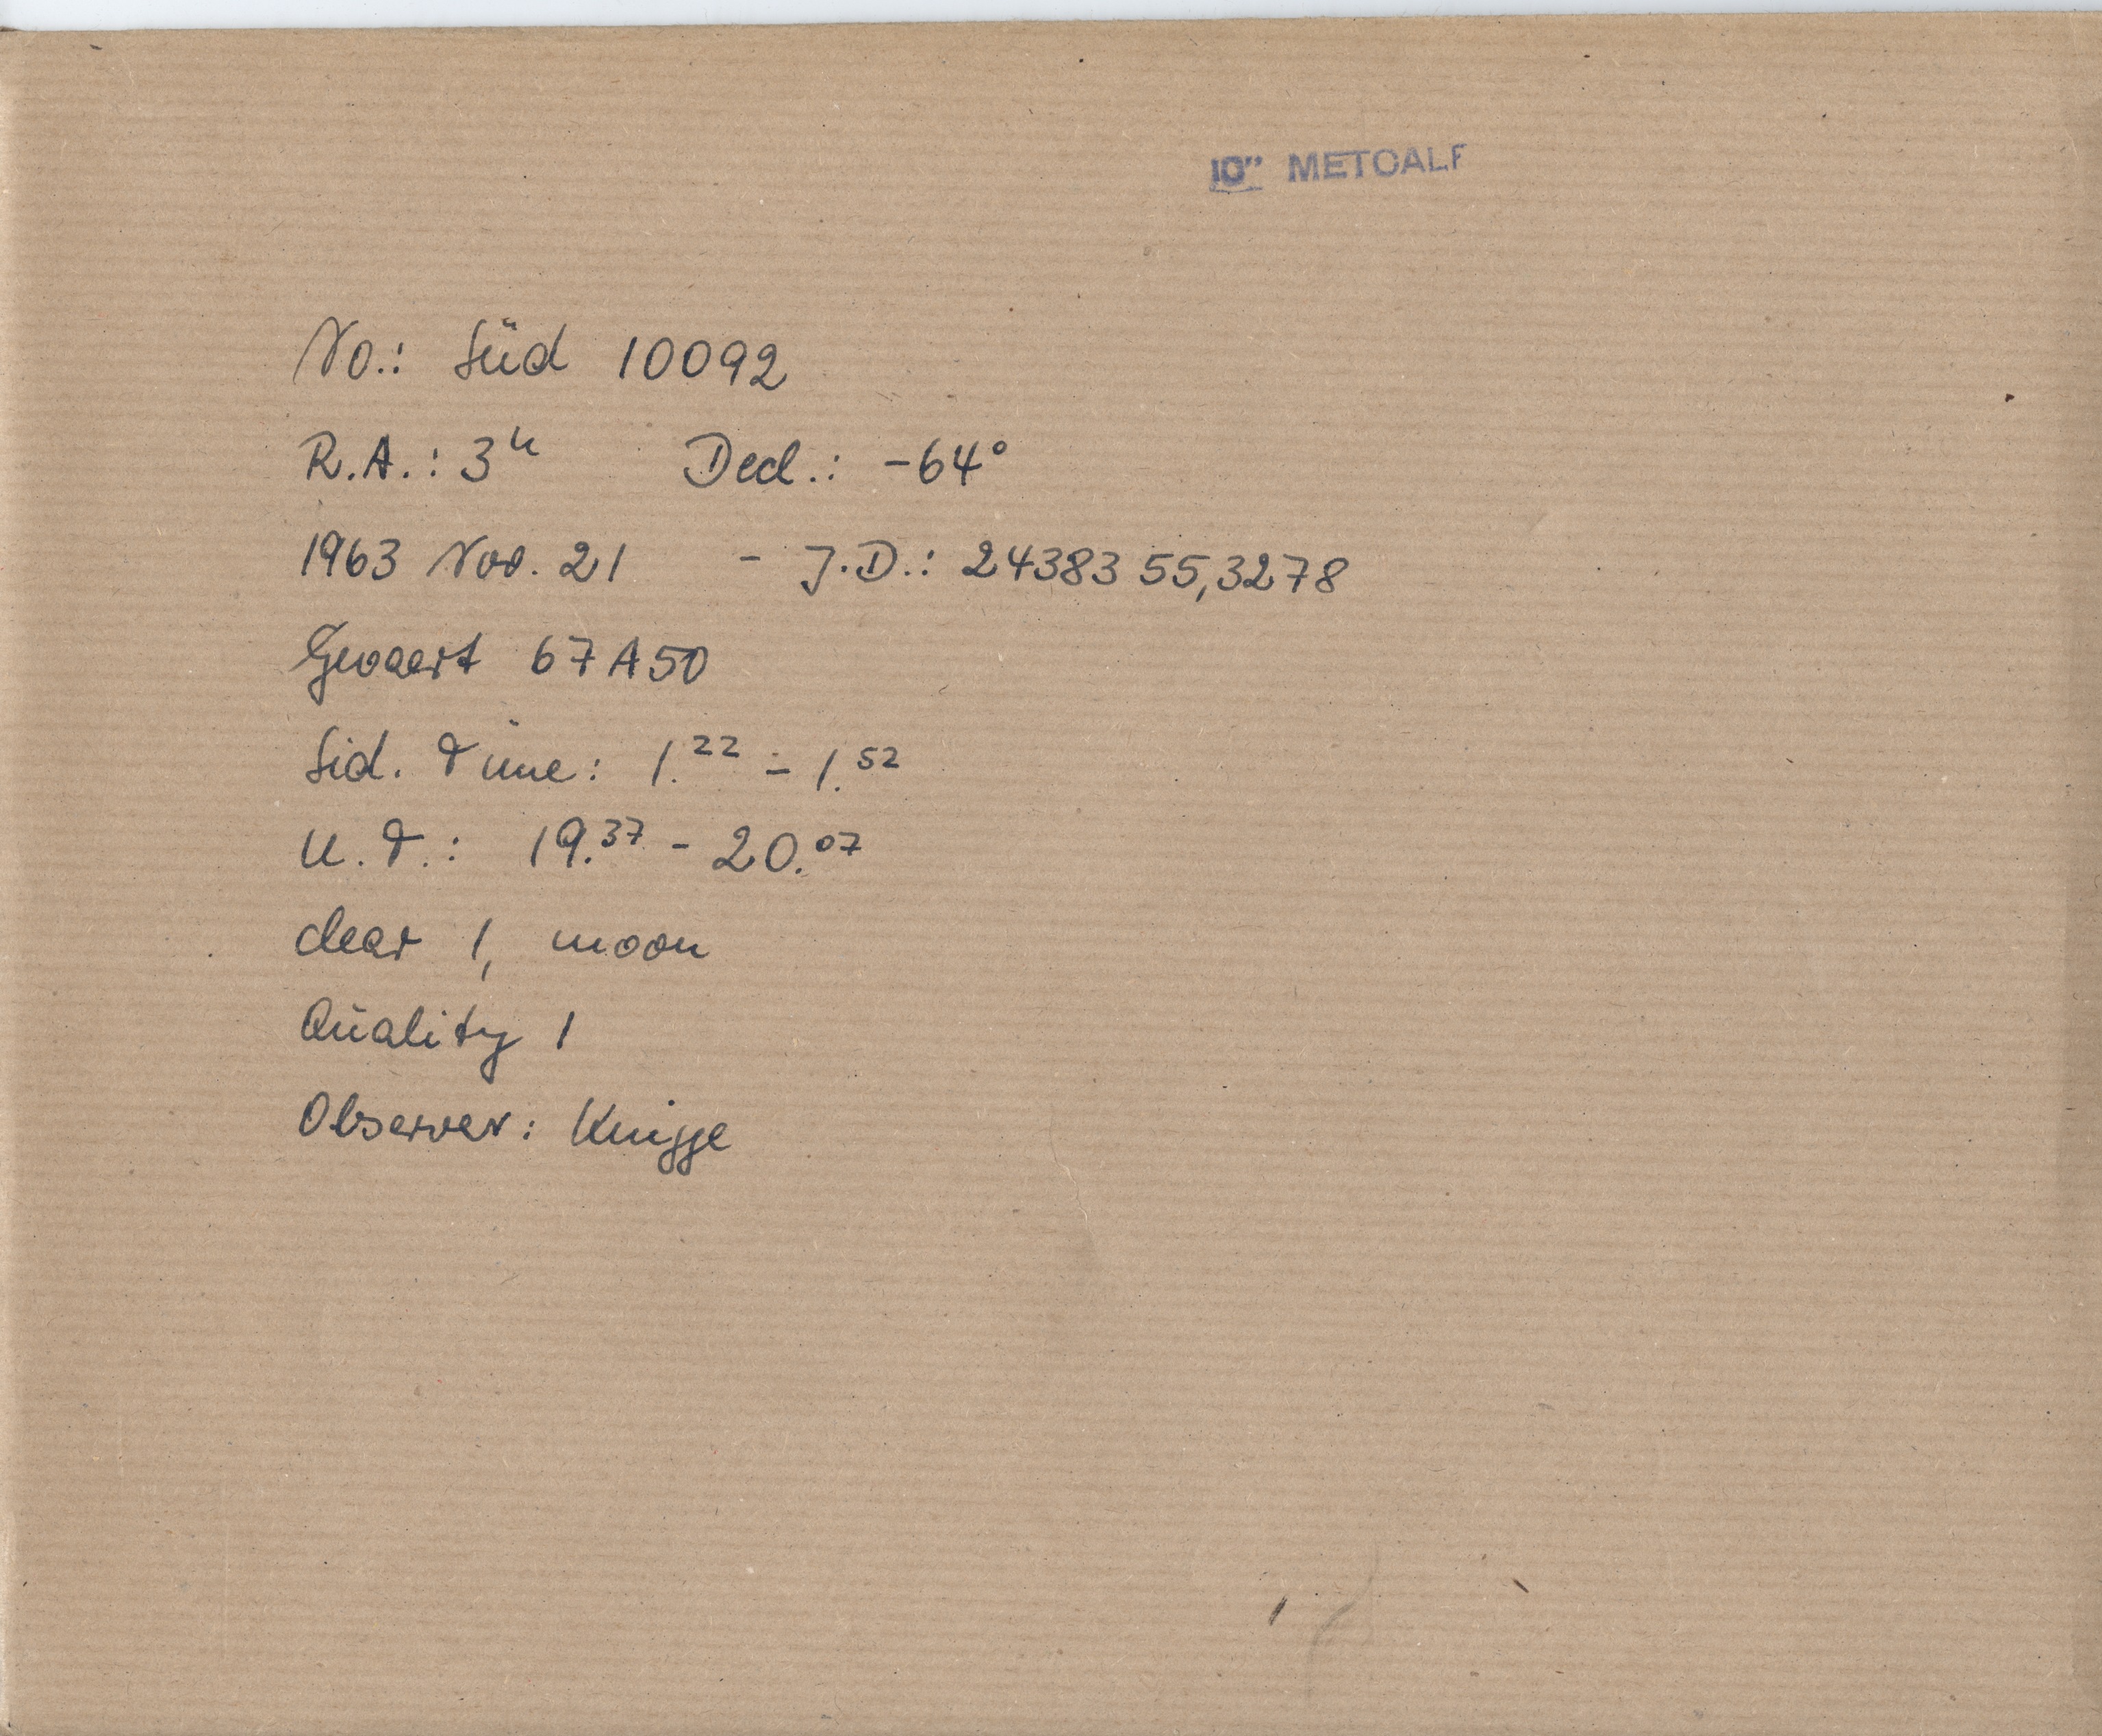 10" METCALF
No.: Süd 10092
R.A.: 3ʰ Decl.: -64°
1963 Nov. 21 - J.D.: 24383 55,3278
Gevaert 67A50
Sid. Time: 1.²² - 1.⁵²
U.T.: 19.³⁷ - 20.⁰⁷
clear 1, moon
Quality 1
Observer: Knigge